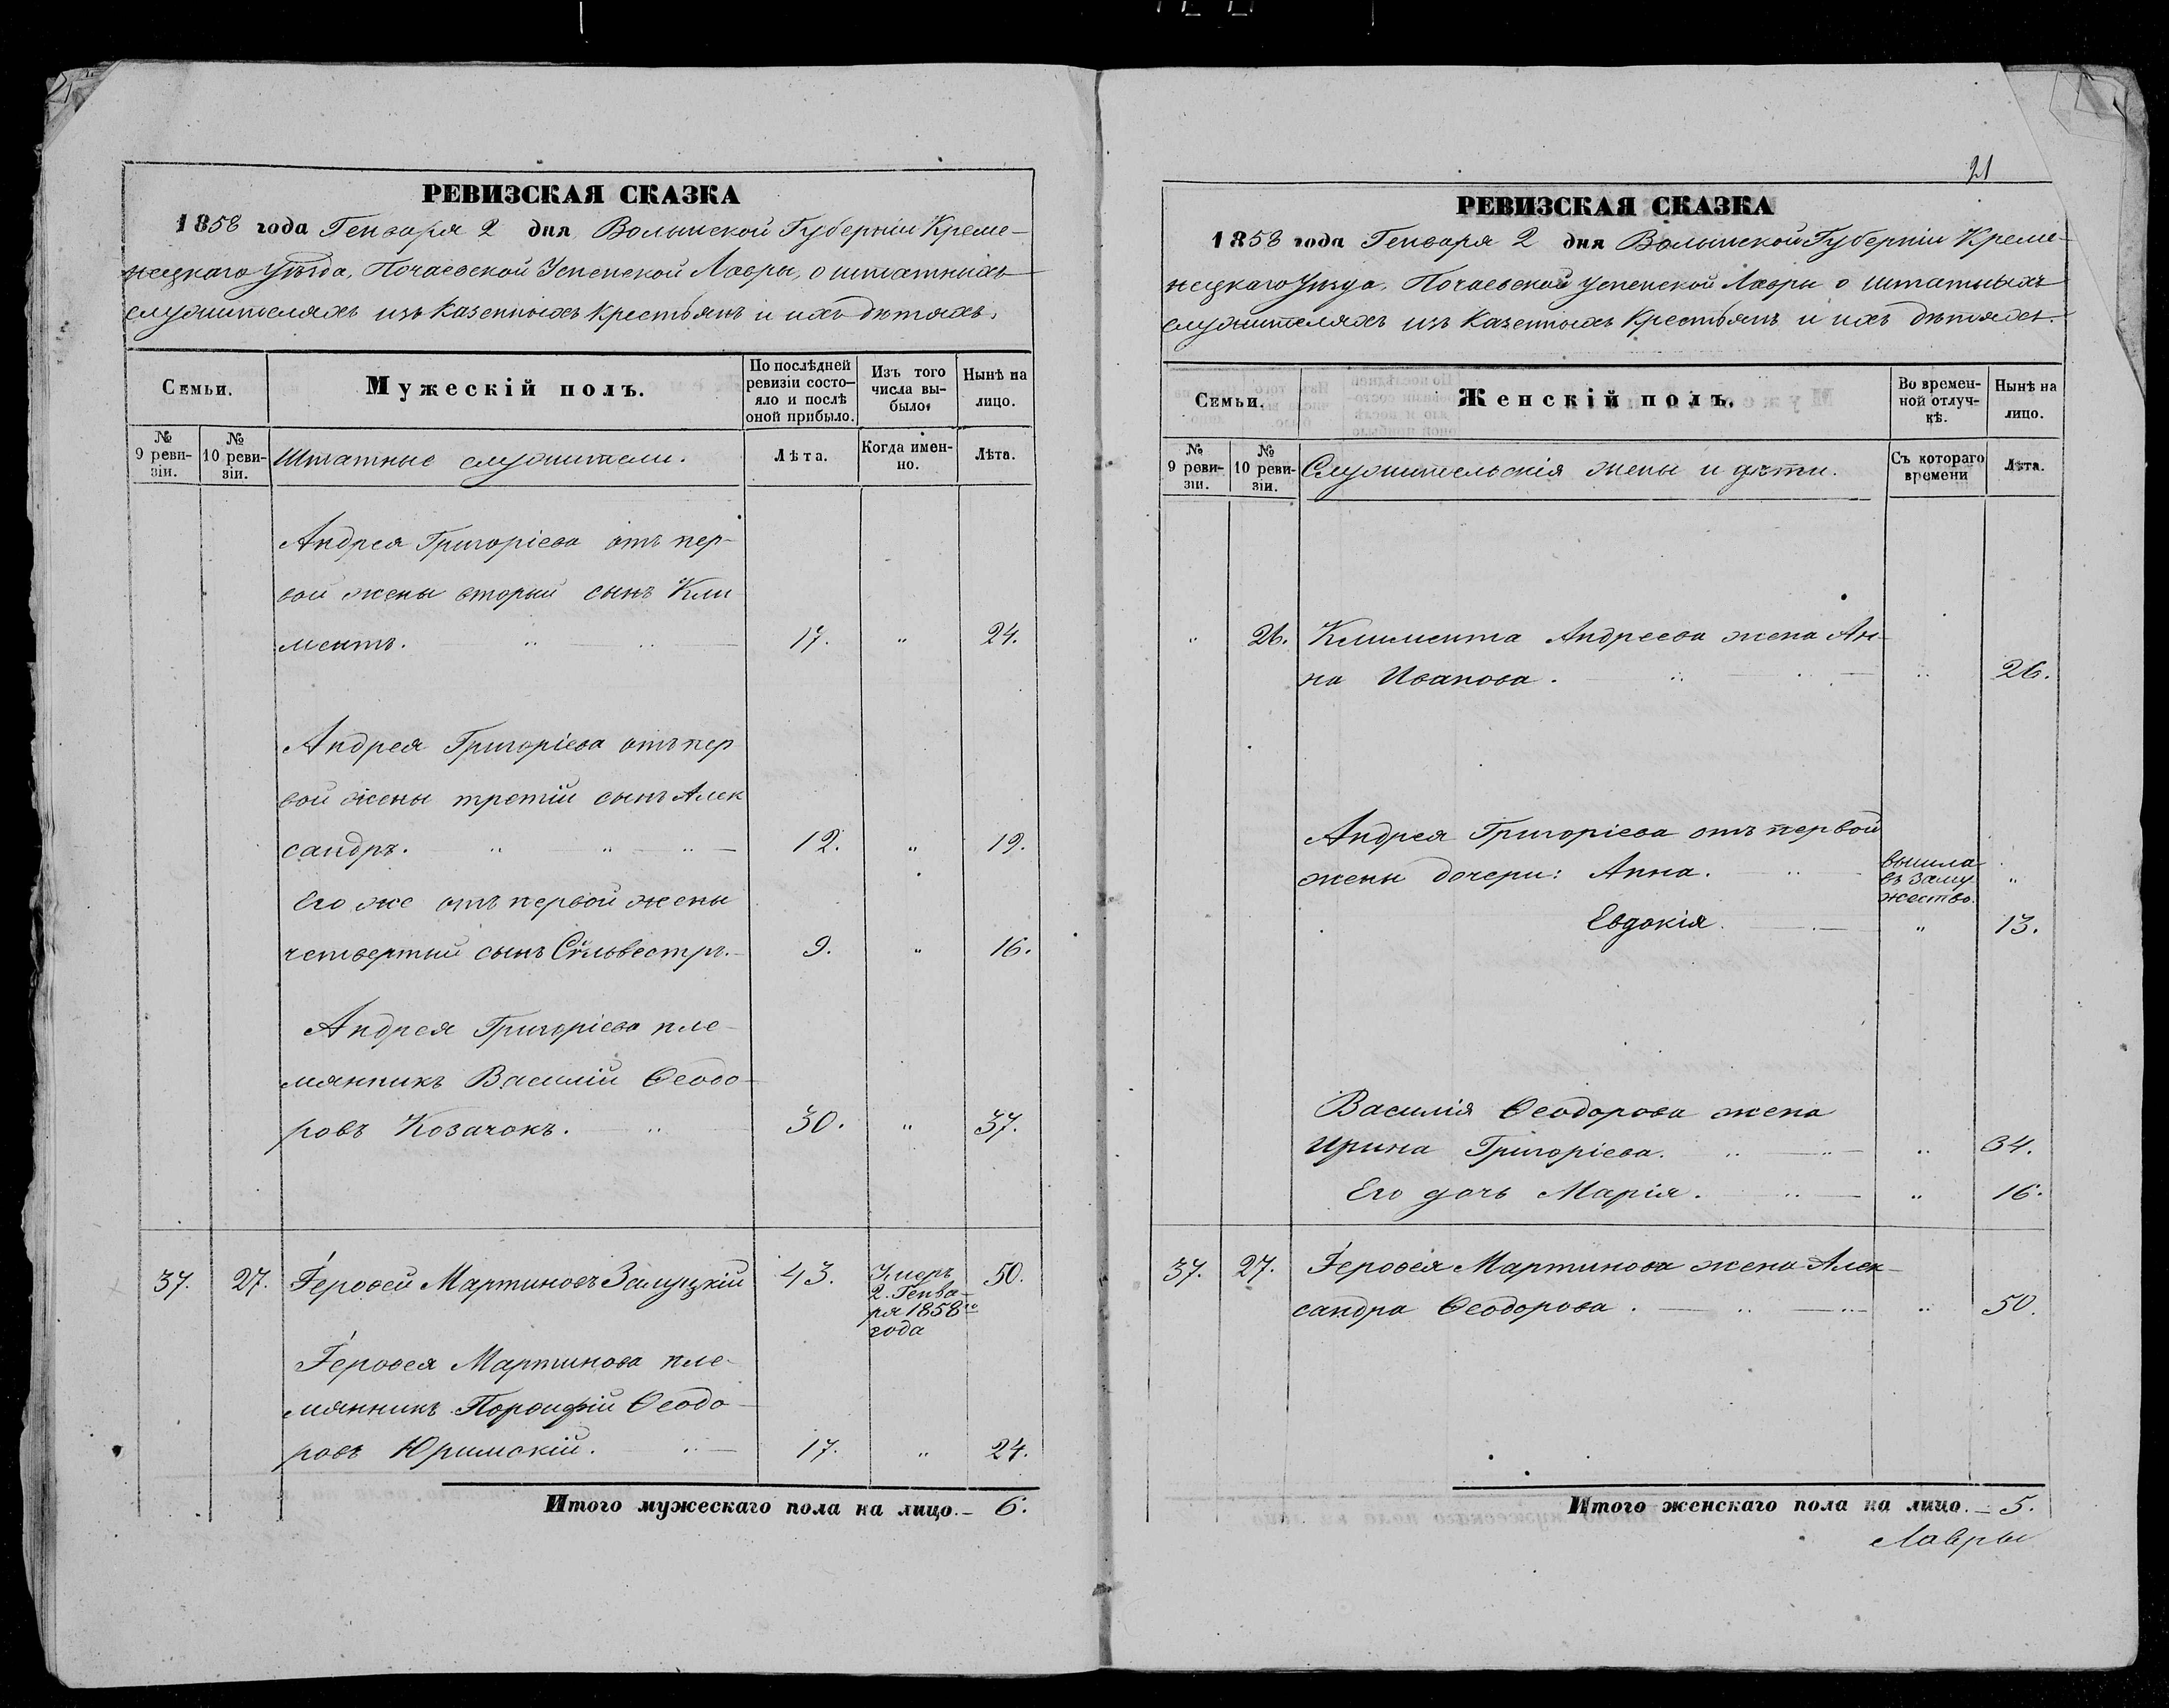 РЕВИЗСКАЯ СКАЗКА
1858 года Генваря 2 дня Волынской Губерніи Креме-
нецкаго Уѣзда, Почаевской Успенской Лавры, о штатныхъ
служителяхъ изъ Казенныхъ Крестьянъ и ихъ дѣтяхъ.
Семьи.
Мужескій полъ.
По послѣдней
ревизіи состо-
яло и послѣ
оной прибыло.
Изъ того
числа вы-
было.
Нынѣ на
лицо.
№
9 реви-
зіи.
№
10 реви-
зіи.
Штатные служители.
Лѣта.
Когда имен-
но.
Лѣта.
Андрея Григоріева отъ пер-
вой жены вторый сынъ Кли
ментъ. 17. " 24.
Андрея Григоріева отъ пер
вой жены третій сынъ Алек
сандръ. 12. " 19.
Его же отъ первой жены
четвертый сынъ Сѵльвестръ. 9. " 16.
Андрея Григоріева пле-
мянникъ Василій Ѳеодо-
ровъ Козачокъ. 30. " 37.
37. 27. Герофей Мартиновъ Залуцкій 43. 50.
Умеръ
2. Генва-
ря 1858го
года
Герофея Мартинова пле-
мянникъ Порфирій Ѳеодо-
ровъ Юримскій. 17. " 24.
Итого мужескаго пола на лицо. 6.
21
РЕВИЗСКАЯ СКАЗКА
1858 года Генваря 2 дня Волынской Губерніи Креме-
нецкаго Уѣзда, Почаевской Успенской Лавры о штатныхъ
служителяхъ изъ Казенныхъ Крестьянъ и ихъ дѣтяхъ.
Семьи.
Женскій полъ.
Во времен-
ной отлуч-
кѣ.
Нынѣ на
лицо.
№
9 реви-
зіи.
№
10 реви-
зіи.
Служительскія жены и дѣти.
Съ котораго
времени
Лѣта.
" 26. Климента Андреева жена Ан-
на Иванова. " 26.
Андрея Григоріева отъ первой
жены дочери: Анна. "
вышла
въ заму
жество.
Евдокія. " 13.
Василія Ѳеодорова жена
Ирина Григоріева. " 34.
Его дочь Марія. " 16.
37. 27. Герофея Мартинова жена Алек-
сандра Ѳеодорова. " 50.
Итого женскаго пола на лицо. 5.
Лавры